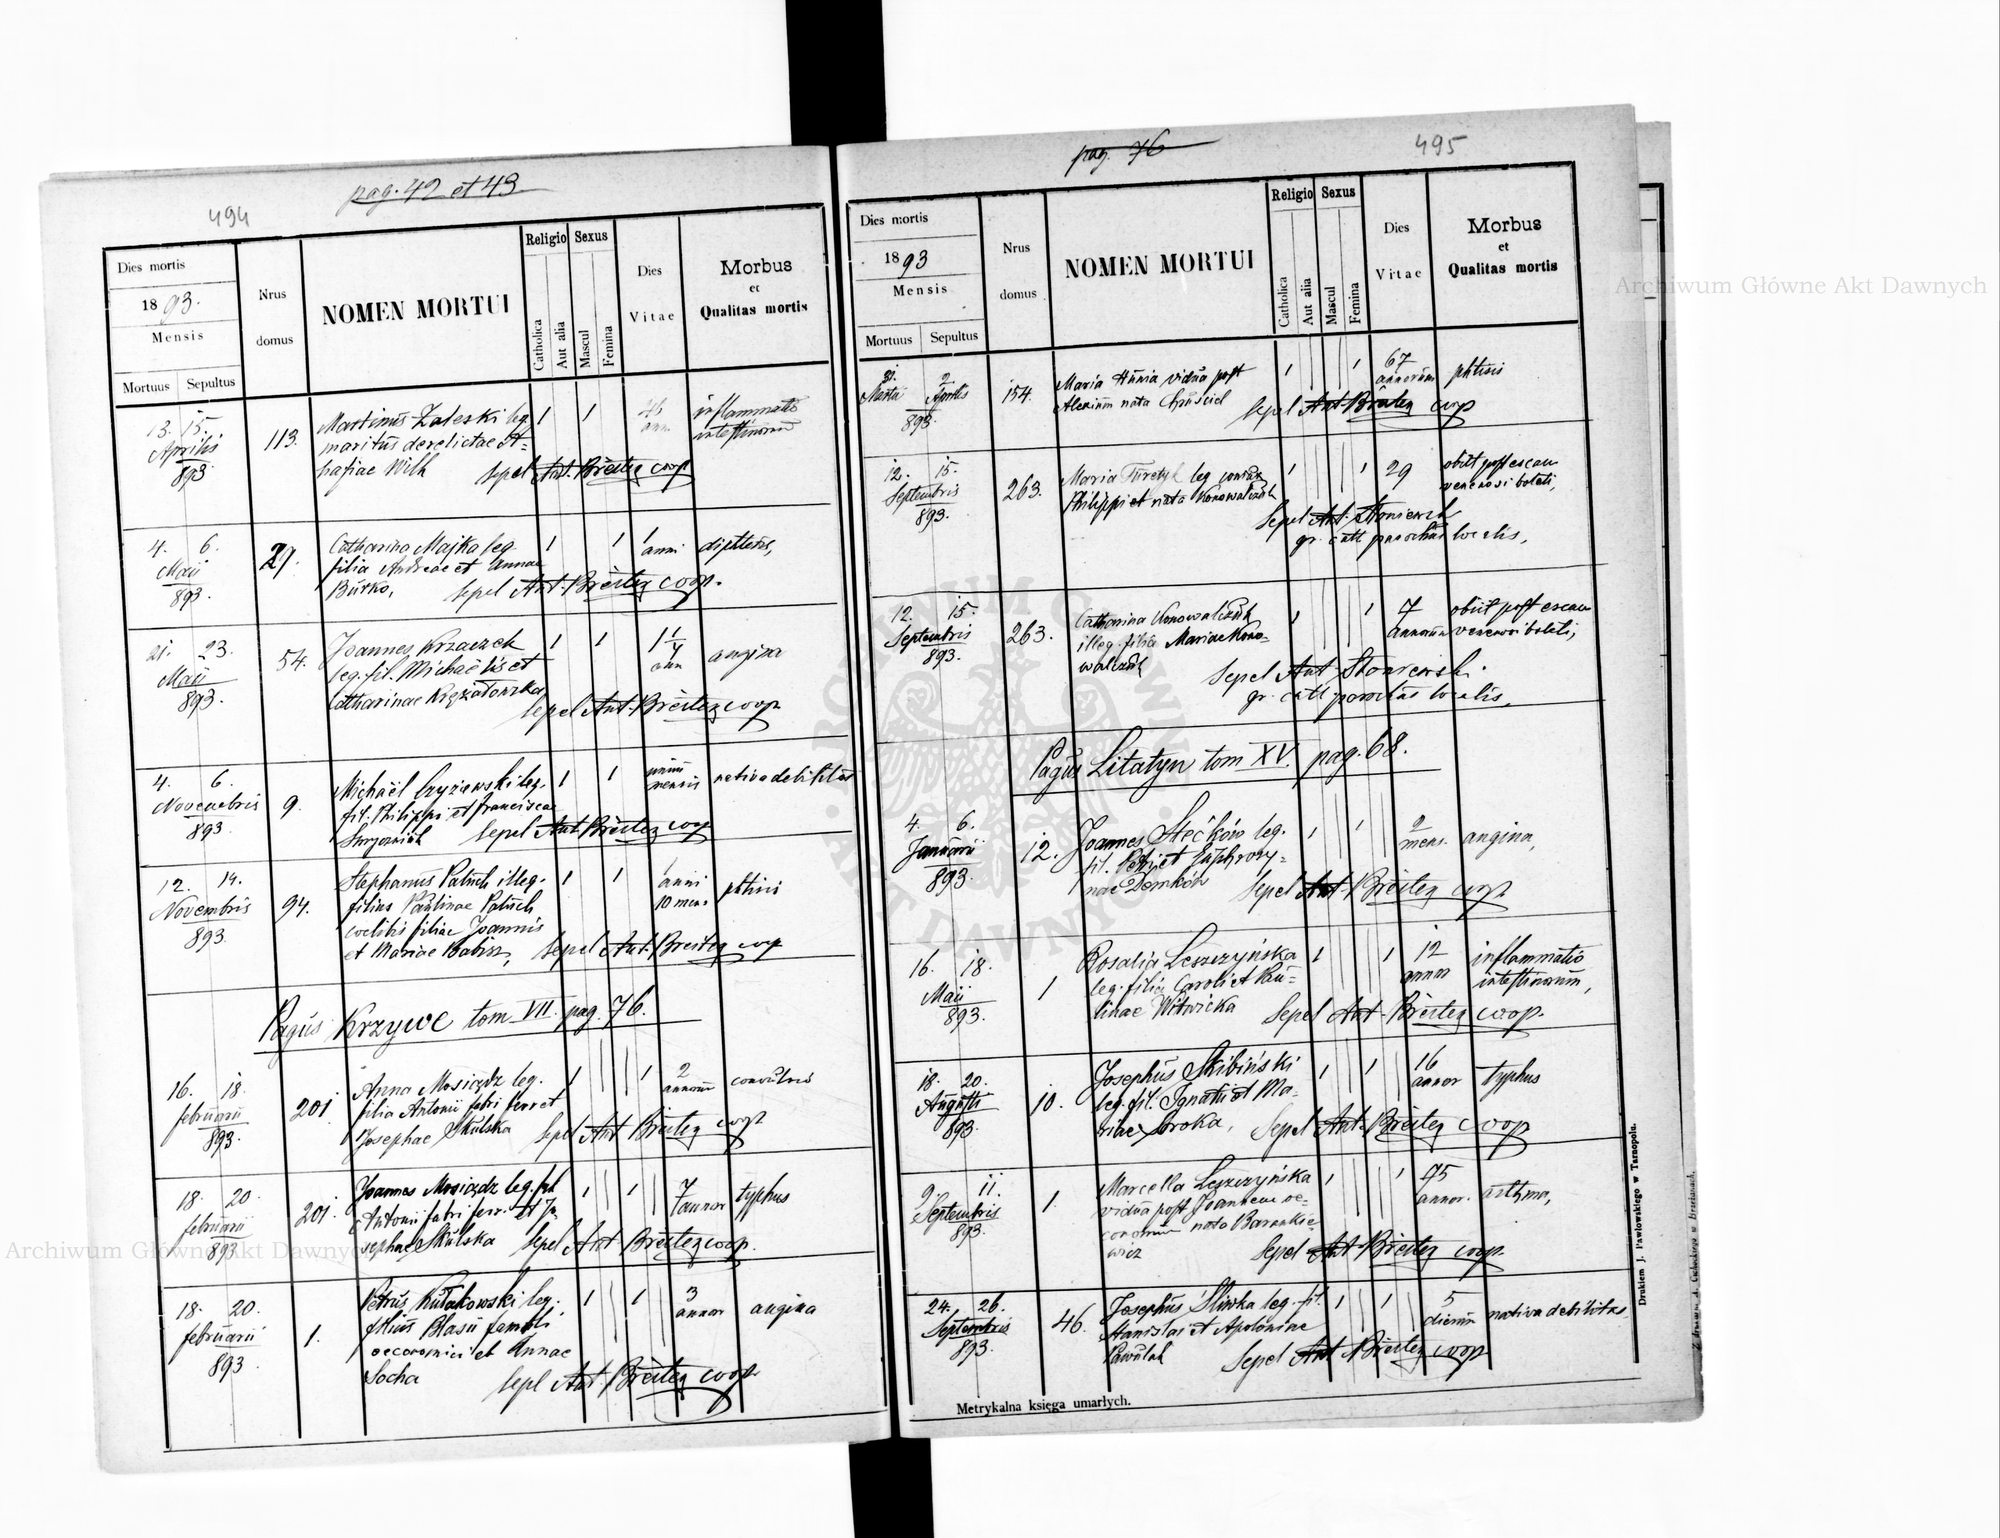 494
pag. 42 et 43
Dies mortis
1893.
Mensis
Mortuus Sepultus
Nrus domus
NOMEN MORTUI
Religio
Catholica
Aut alia
Sexus
Mascul
Femina
Dies Vitae
Morbus
et
Qualitas mortis
13. 15. Aprilis 893.
113.
Martinus Zaleski leg.
maritus derelictae
Wilk
inflammatio
intestinorum
sepel Ant. Breitez coop
4. 6. Maii 893.
29.
Catharina Majka leg.
filia Andreae et Annae
Burko,
1 anni
sepel Ant. Breitez coop.
21. 23. Maii 893.
54.
Joannes Krzaczek
leg. fil. Michaëlis et
Catharinae
angina
sepel Ant. Breitez coop
4. 6. Novembris 893.
9.
Michaël leg.
fil. Philippi et Franciscae
unius mensis
nativa debilitas
sepel Ant Breitez coop
12. 14. Novembris 893.
94.
Stephanus Patuch illeg.
filius Paulinae Patuch
coelibis filiae Joannis
et Mariae Babisz,
1 anni
10 mens
phtisis
sepel Ant. Breitez coop
Pagus Krzywe tom VII. pag. 76.
16. 18. februarii 893.
201
Anna Mosiądz leg.
filia Antonii fabri ferr et
Josephae Skulska
2 annorum
convulsio
sepel Ant Breitez coop
18. 20. februarii 893
201.
Joannes Mosiądz leg. fil
Antonii fabri ferr. et Jo
sephae Skulska
7 annor
typhus
sepel Ant. Breitez coop.
18. 20. februarii 893
1.
Petrus Kułakowski leg.
filius Blasii famuli
oeconomici et Annae
Socha
3 annor
angina
sepel Ant. Breitez coop
pag. 76
495
Dies mortis
1893
Mensis
Mortuus Sepultus
Nrus domus
NOMEN MORTUI
Religio
Catholica
Aut alia
Sexus
Mascul
Femina
Dies Vitae
Morbus
et
Qualitas mortis
31. Martii 2 Aprilis 893.
154.
Maria Hunia vidua post
Alexium nata Chruściel
67 annorum
phtisis
sepel Ant. Breitez coop
12. 15. Septembris 893.
263.
Maria leg coniux
Philippi et nata Konowalczuk
29
obiit post escam
venenosi boleti,
Sepel Ant. Słoniewsk
gr. cath parochus localis,
12. 15. Septembris 893.
263.
Catharina Konowalczuk
illeg. filia Mariae Kono-
walczuk
7 annorum
obiit post escam
venenosi boleti,
Sepel Ant Słoniewski
gr. cath parochus localis,
Pagus Litatyn tom XV. pag. 68.
4. 6. Januarii 893.
12.
Joannes Stećków leg.
fil. Petri et Euphrosy-
nae Demków
2 mens.
angina,
Sepel Ant. Breitez coop
16. 18. Maii 893.
1
Rosalia Leszczyńska
leg. filia Caroli et Pau-
linae Witwicka
12 annor
inflammatio
intestinorum,
Sepel Ant. Breitez coop.
18. 20. Augusti 893.
10.
Josephus Skibiński
leg. fil. Ignatii et Ma-
riae Sroka,
16 annor
typhus
Sepel Ant. Breitez coop
9 11. Septembris 893.
1.
Marcella Leszczyńska
vidua post Joannem oe-
conomum nata Barankie-
wicz
75 annor.
asthma,
Sepel Ant Breitez coop.
24. 26. Septembris 893.
46.
Josephus Śliwka leg. fil.
Stanislai et Apoloniae
Pawulak
5 dierum
nativa debilitas,
Sepel Ant Breitez coop
Metrykalna księga umarłych.
Drukiem J. Pawłowskiego w Tarnopolu.
Archiwum Główne Akt Dawnych
Archiwum Główne Akt Dawnych